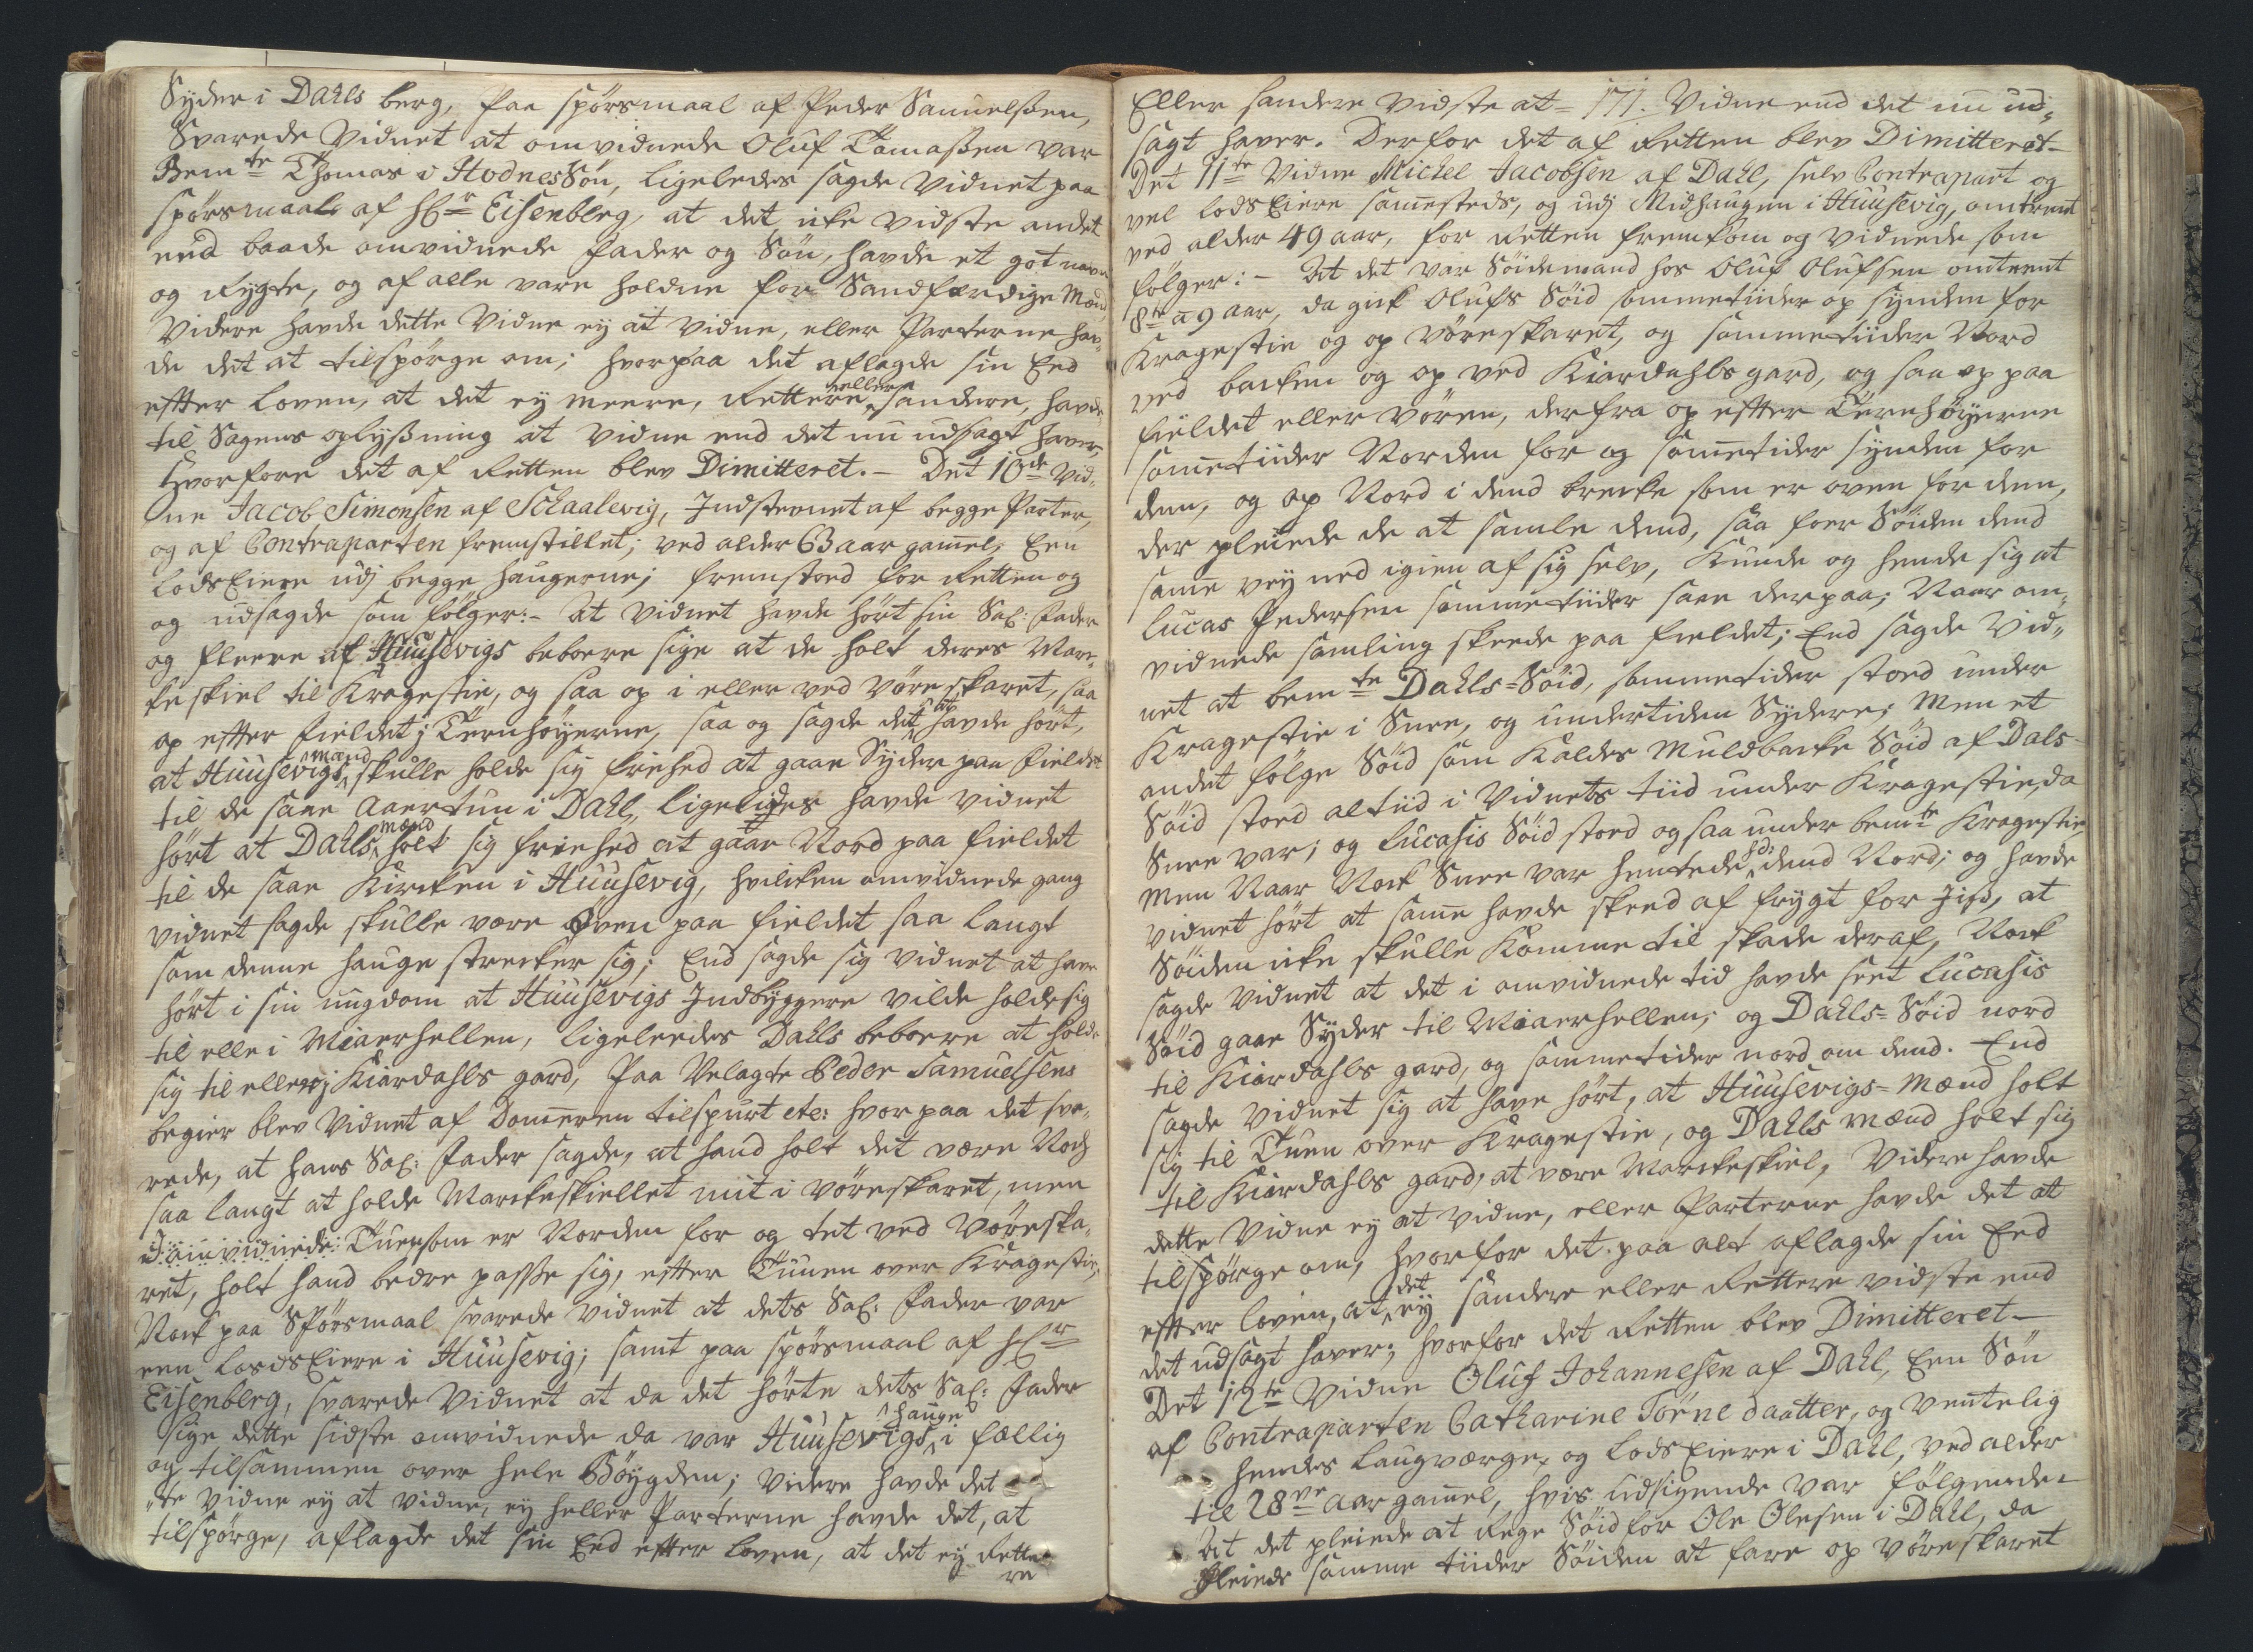 Syder i Dahls berg, paa spörsmaal af Peder Samuelßen,
Svarede Vidnet at omvidnede Oluf Tomaßen var
Bemte Thomas i Hodnes Sön, ligeledes sagde Vidnet paa
spörsmaal af Hr Eisenberg, at det icke vidste andet
end baade omvidnede fader og Sön, havde et got navn
og Rygte, og af alle vare holdne for Sandfærdige Mænd
Videre havde dette Vidne ey at vidne, eller Parterne hav¬
de det at tilspörge om; hvorpaa det aflagde sin Eed
efter loven, at det ey meere, Rettere eller sandere, havde
til Sagens oplysning at vidne end det nu udsagt haver,
hvorfore det af Retten blev Dimitteret. – Det 10de Vid¬
ne Jacob Simonsen af Schaalevig, Indstevnet af begge Parter,
og af Contraparten fremstillet; ved alder 63 aar gamel, Een
lods Eiere udj begge haugerne; fremstoed for Retten og
og udsagde som fölger: – At Vidnet havde hört sin Sal: Fader
og fleere af Huusevigs beboere sige at de holt deres Mar¬
keskiel til Kragestie, og saa op i eller ved Vöreskaret, saa
op efter fieldet j Ternhöyerne, saa og sagde det at havde hört,
at Huusevigs mænd skulle holde sig friehed at gaae Syder paa Fieldet
til de saae Aaertun i Dahl, ligeledes havde vidnet
hört at Dahls mænd holt sig friehed at gaae Nord paa fieldet
til de saae Kircken i Huusevig, hvilcken omvidnede gang
vidnet sagde skulle være Oven paa fieldet saa langt
som denne hauge strecker sig; End sagde sig vidnet at have
hört i sin ungdom at Huusevigs Indbyggere vilde holde sig
til elle i Miaerhellen, ligeleedes Dahls beboere at holde
sig til eller j Kiærdahls gard, Paa Velagte Peder Samuelsens
begier blev Vidnet af Domeren tilspurt etc: hvorpaa det sva¬
rede, at hans Sal: Fader sagde, at hand holt det være Nock
saa langt at holde Marckeskiellet mit i vöreskaret, men
d: omvidnede: Tuen som er Norden for og tet ved Vöreska¬
ret, holt hand bedre passe sig, efter Tuuen over Kragestie,
Nock paa Spörsmaal svarede vidnet at dets Sal: Fader var
een Lods Eiere i Huusevig; samt paa spörsmaal af Hr
Eisenberg, svarede Vidnet at da det hörte dets Sal: Fader
sige dette sidste omvidnede da var Huusevigs hauge i fællig
og tilsammen over hele Böygden; videre havde det
te vidne ey at vidne, ey heller Parterne havde det, at
tilspörge, aflagde det sin Eed efter loven, at det ey Rette
re
Eller sandere vidste at = 171. Vidne end det nu ud¬
sagt haver. Derfor det af Retten blev Dimitteret –
Det 11te Vidne Michel Jacobsen af Dahl, selv Contrapart og
vel lods Eiere samesteds, og udj Midhaugen i Huusevig, omtrent
ved alder 49 aar, for Retten fremkom og vidnede som
fölger: – At det var Söidemand hos Oluf Olufsen omtrent
8te a 9 aar, da gick Olufs Söid sommetiider op synden for
Kragestie og op Vöreskaret, og sommetiider Nord
ved backen og op ved Kiærdahls gard, og saa op paa
fieldet eller Vören, derfra op efter Ternhöyerne
sometiider Norden for og sometider synden for
dem, og op Nord i dend brecke som er oven for dem,
der pleiede de at samle dend, saa foer Söiden dend
same vey ned igien af sig selv, Kunde og hende sig at
Lucas Pedersen sommetiider saae derpaa; Naar om¬
vidnede samling skeede paa fieldet; End sagde Vid¬
net at bemte Dahls-Söid, sommetider stoed under
Kragestie i Snee, og undertiden Sydere; Men et
andet fölge Söid som Kaldes Muldbacke Söid af Dals
Söid stoed altiid i Vidnets tiid under Kragestie, da
Snee var; og Lucasis Söid stoed og saa under bemte Kragestie
men Naar Nock Snee var hentede hd: dend Nord; og havde
vidnet hört at same havde skeed af frygt for Jiß, at
Söiden icke skulle Komme til skade deraf, Nock
sagde Vidnet at det i omvidnede tid havde seet Lucasis
Söid gaae Syder til Miaerhellen; og Dahls-Söid nord
til Kiærdahls gard, og sommetider nord om dend. End
sagde vidnet sig at have hört, at Huusevigs-Mænd holt
sig til Tuen over Kragestie, og Dahls mænd holt sig
til Kiærdahls gard, at være Marckeskiel, Videre havde
dette Vidne ey at vidne, eller Parterne havde det at
tilspörge om, hvorfor det paa alt aflagde sin Eed
efter loven, at det ey sandere eller Rettere vidste end
det udsagt haver; hvorfor det Retten blev Dimitteret –
Det 12te Vidne Oluf Johannesen af Dahl, Een Sön
af Contraparten Catharine Törnedaatter, og ventelig
hendes laugværge, og lods Eiere i Dahl, ved alder
til 28ve aar gamel, hvis udsigende var fölgende
At det pleiede at Rege Söid for Ole Olesen i Dahl, da
Pleiede somme tiider Söiden at fare op vöreskaret